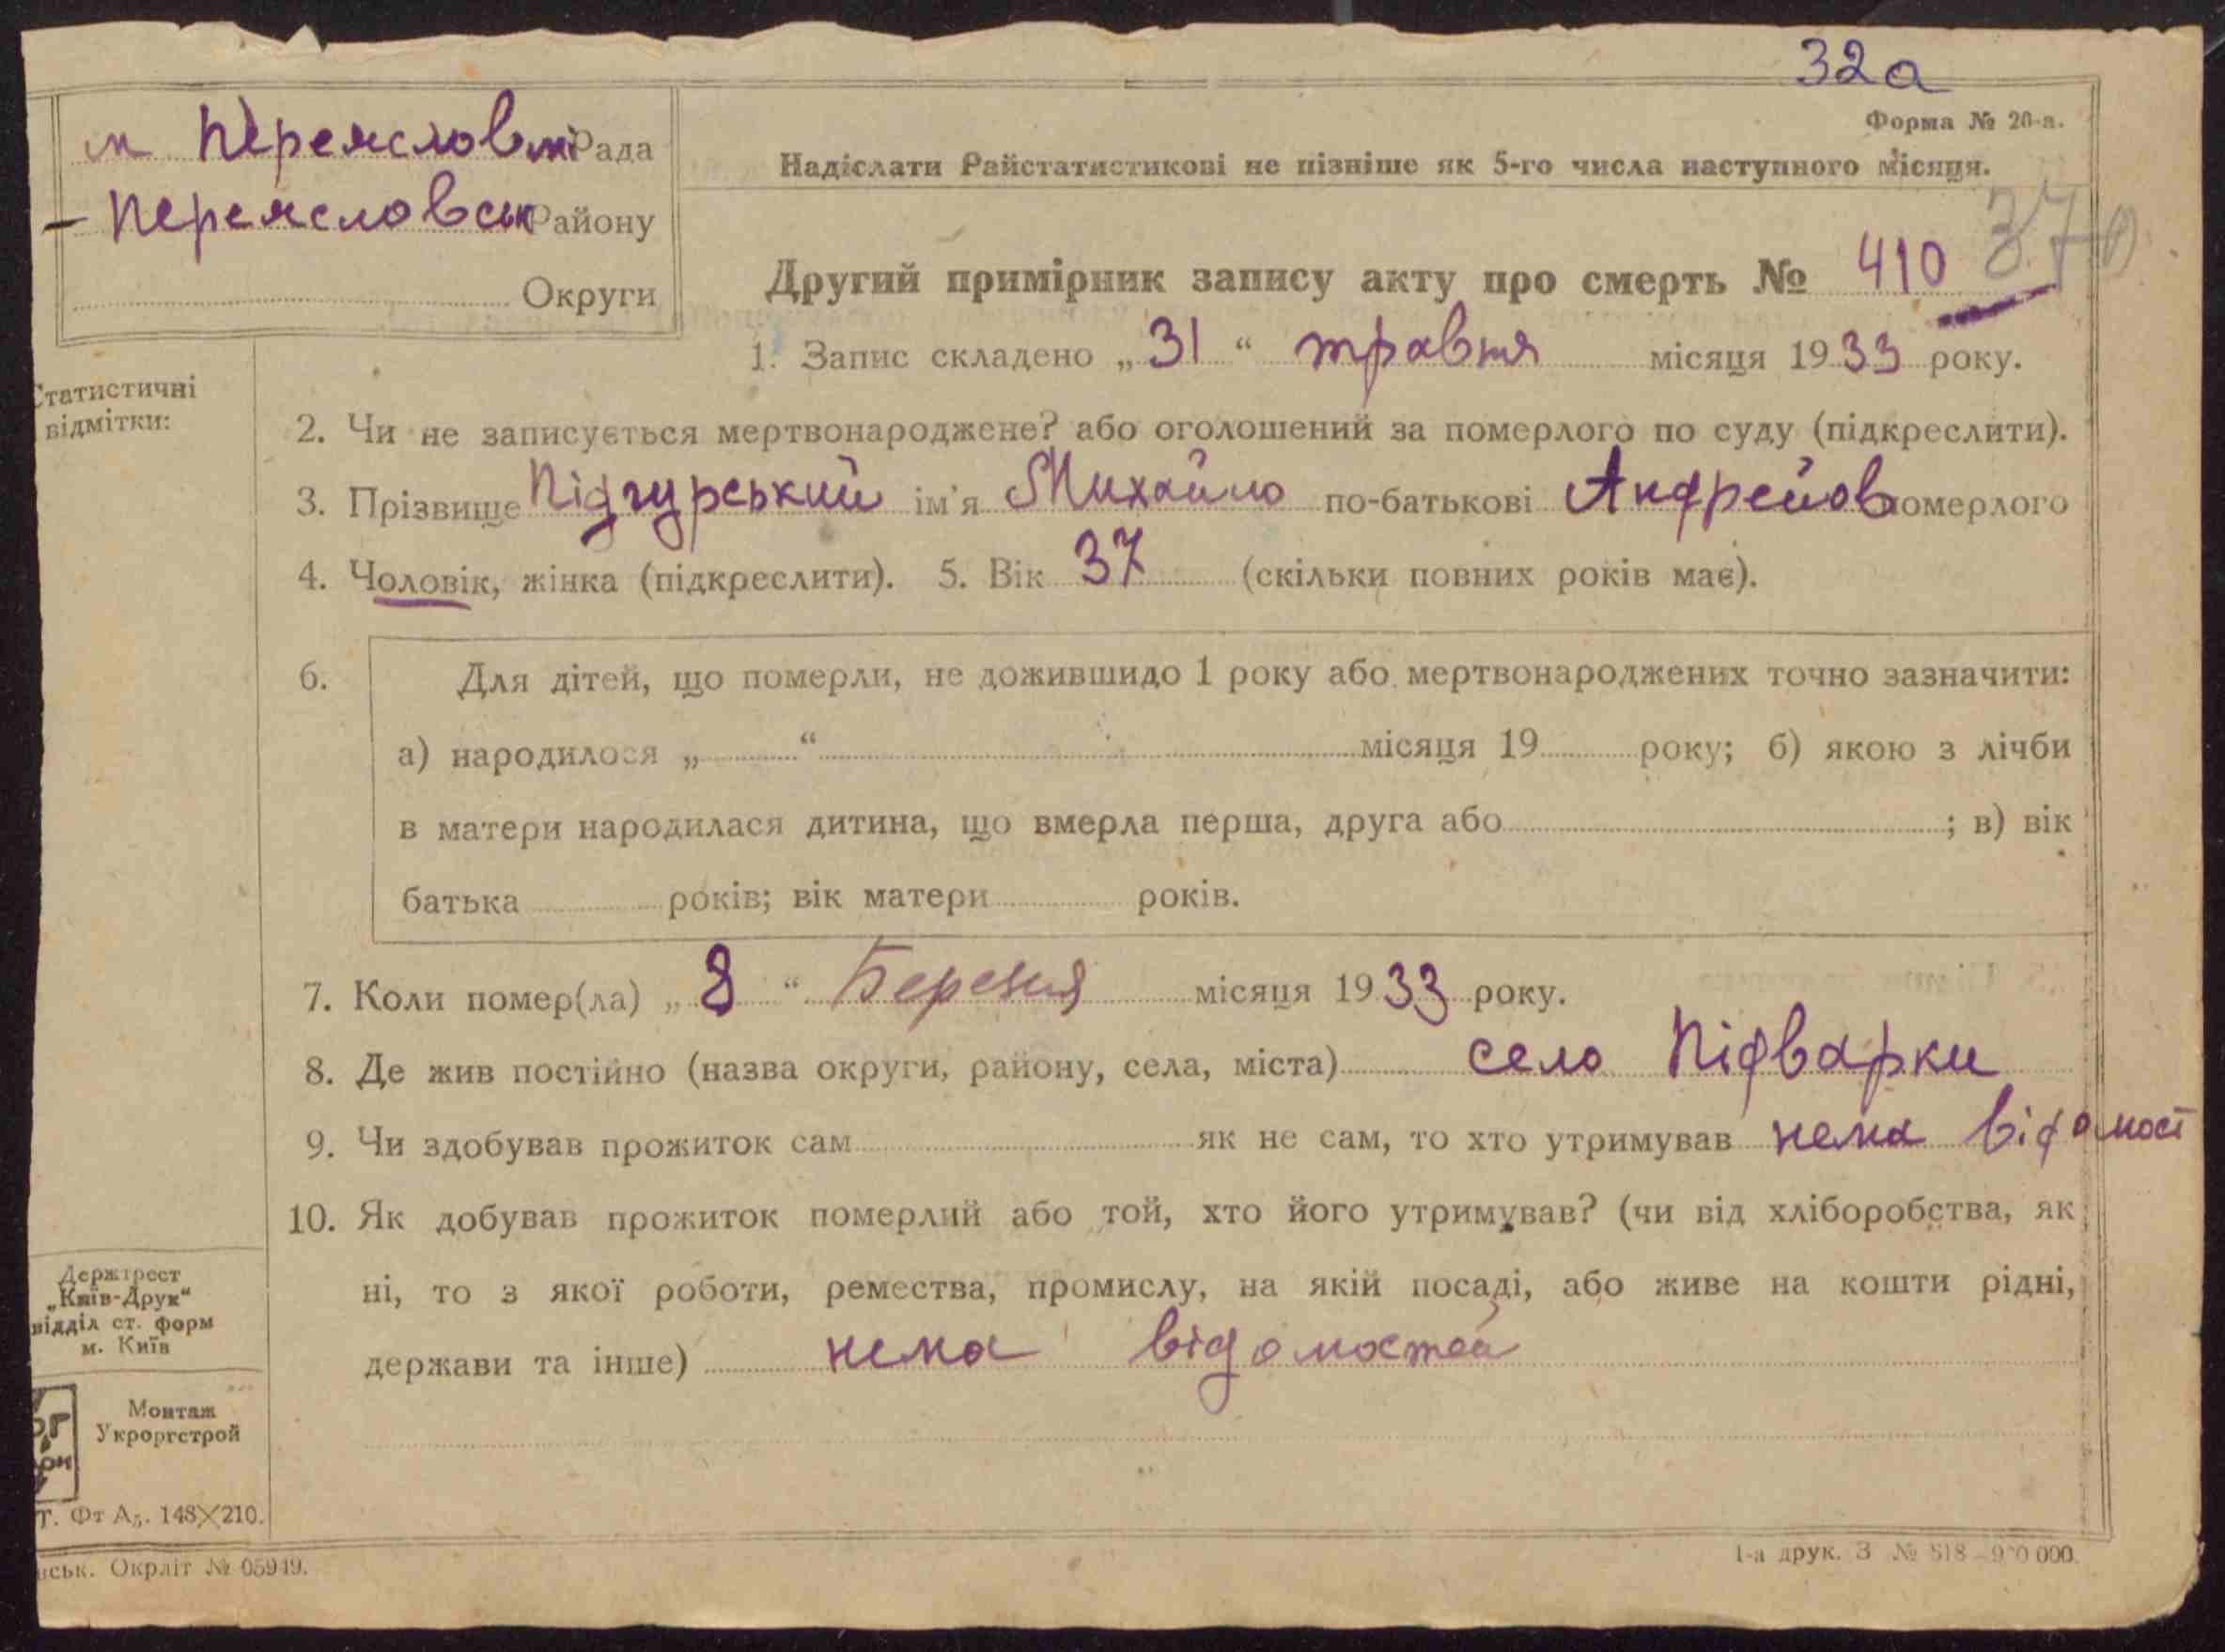 32а
Форма № 20-а.
м Переяслов Рада
Надіслати Райстатистикові не пізніше як 5-го числа наступного місяця.
Переясловськ Району
Округи
Другий примірник запису акту про смерть № 410 370
1. Запис складено „31“ травня місяця 1933 року.
Статистичні
відмітки:
2. Чи не записується мертвонароджене? або оголошений за померлого по суду (підкреслити).
3. Прізвище Підгурський ім'я Михайло по-батькові Андрейов померлого
4. Чоловік, жінка (підкреслити). 5. Вік 37 (скільки повних років має).
6. Для дітей, що померли, не дожившидо 1 року або мертвонароджених точно зазначити:
а) народилося „ “ місяця 19 року; б) якою з лічби
в матери народилася дитина, що вмерла перша, друга або ; в) вік
батька років; вік матери років.
7. Коли помер(ла) „8“ Березня місяця 1933 року.
8. Де жив постійно (назва округи, району, села, міста) село Підварки
9. Чи здобував прожиток сам як не сам, то хто утримував нема відомост
10. Як добував прожиток померлий або той, хто його утримував? (чи від хліборобства, як
ні, то з якої роботи, ремества, промислу, на якій посаді, або живе на кошти рідні,
держави та інше) нема відомостей
Держтрест
„Київ-Друк“
відділ ст. форм
м. Київ
Монтаж
Укроргстрой
Т. Фт А5. 148×210.
ськ. Окрліт № 05949.
1-а друк. З № 518